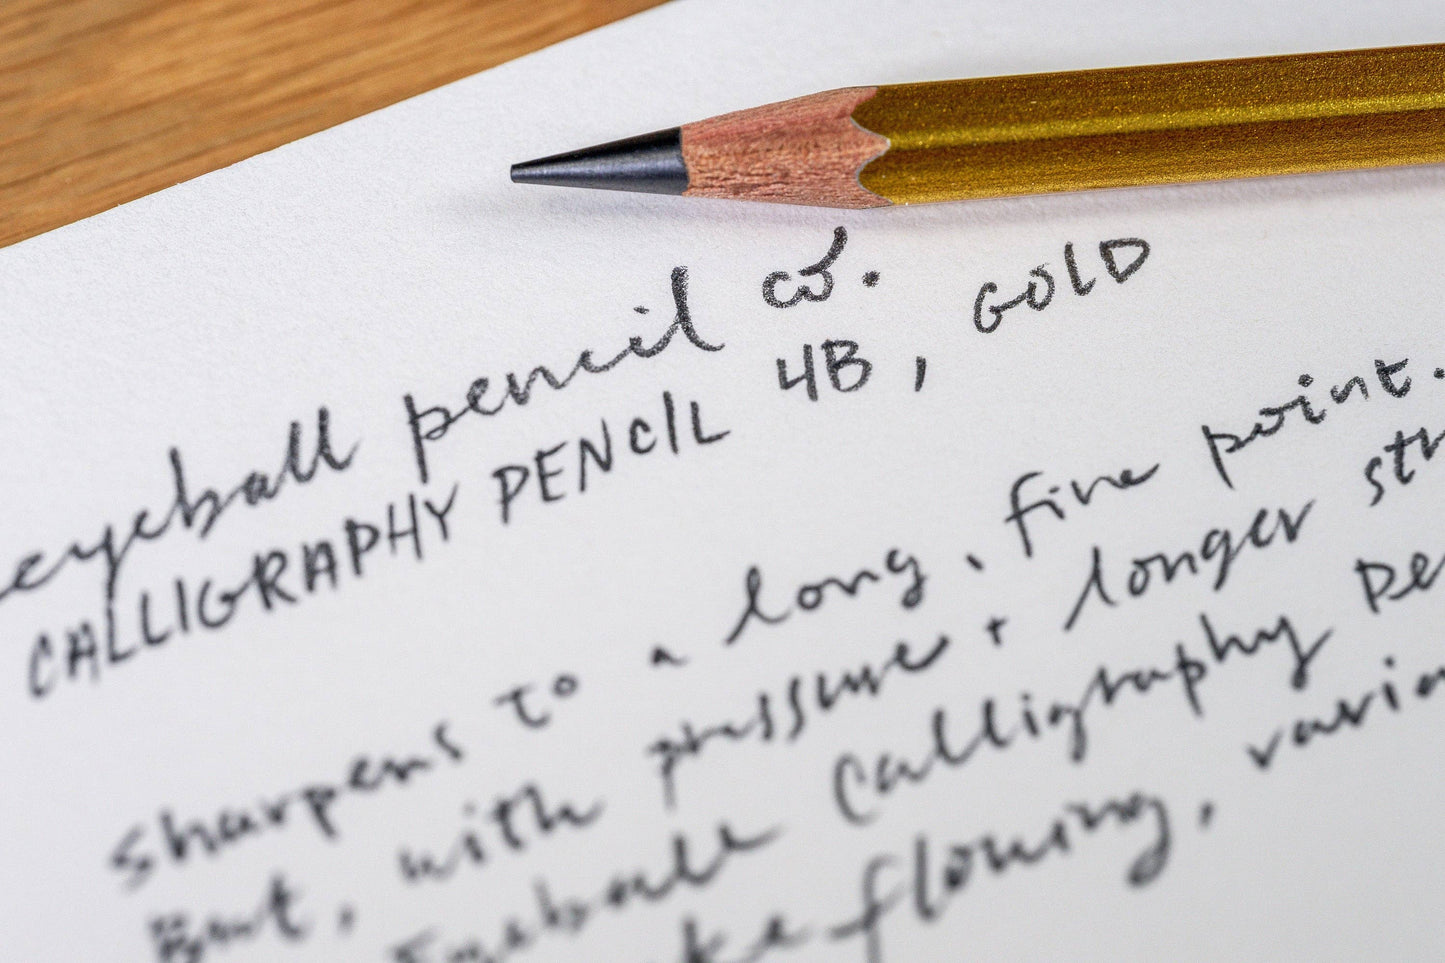 eyeball pencil co.
CALLIGRAPHY PENCIL 4B, GOLD
sharpens to a long, fine point.
But, with pressure + longer
Eyeball Calligraphy
flowing,